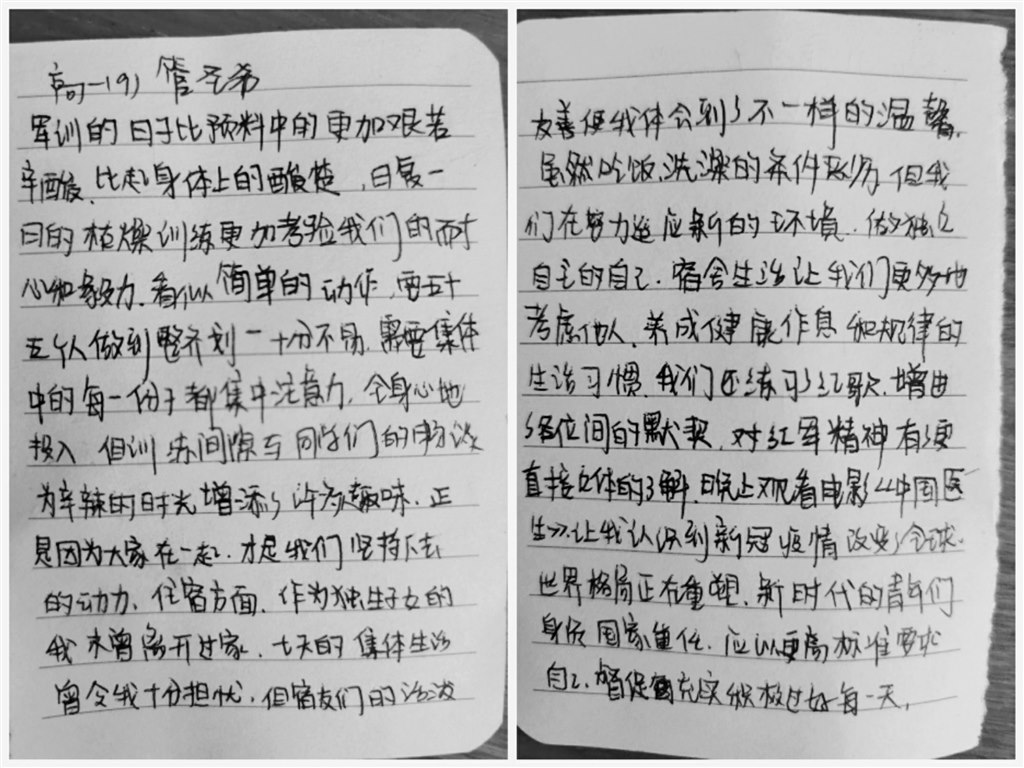 高一(9) 管圣希
军训的日子比预料中的更加艰苦
辛酸.比起身体上的酸楚,日复一
日的枯燥训练更加考验我们的耐
心和毅力.看似简单的动作,要五十
五个人做到整齐划一十分不易.需要集体
中的每一份子都集中注意力,全身心地
投入 但训练间隙与同学们的畅谈
为辛辣的时光增添了许多趣味.正
是因为大家在一起.才是我们坚持下去
的动力.住宿方面,作为独生子女的
我未曾离开过家.七天的集体生活
曾令我十分担忧.但宿友们的活泼
友善使我体会到了不一样的温馨.
虽然吃饭、洗澡的条件恶劣 但我
们在努力适应新的环境.做独立
自主的自己.宿舍生活让我们更多地
考虑他人.养成健康作息和规律的
生活习惯.我们还练习了红歌.增进
了各位间的默契.对红军精神有了更
直接立体的了解.晚上观看电影《中国医
生》让我认识到新冠疫情改变了全球.
世界格局正在重塑.新时代的青年们
身负国家重任.应以更高标准要求
自己.督促充实积极过好每一天.